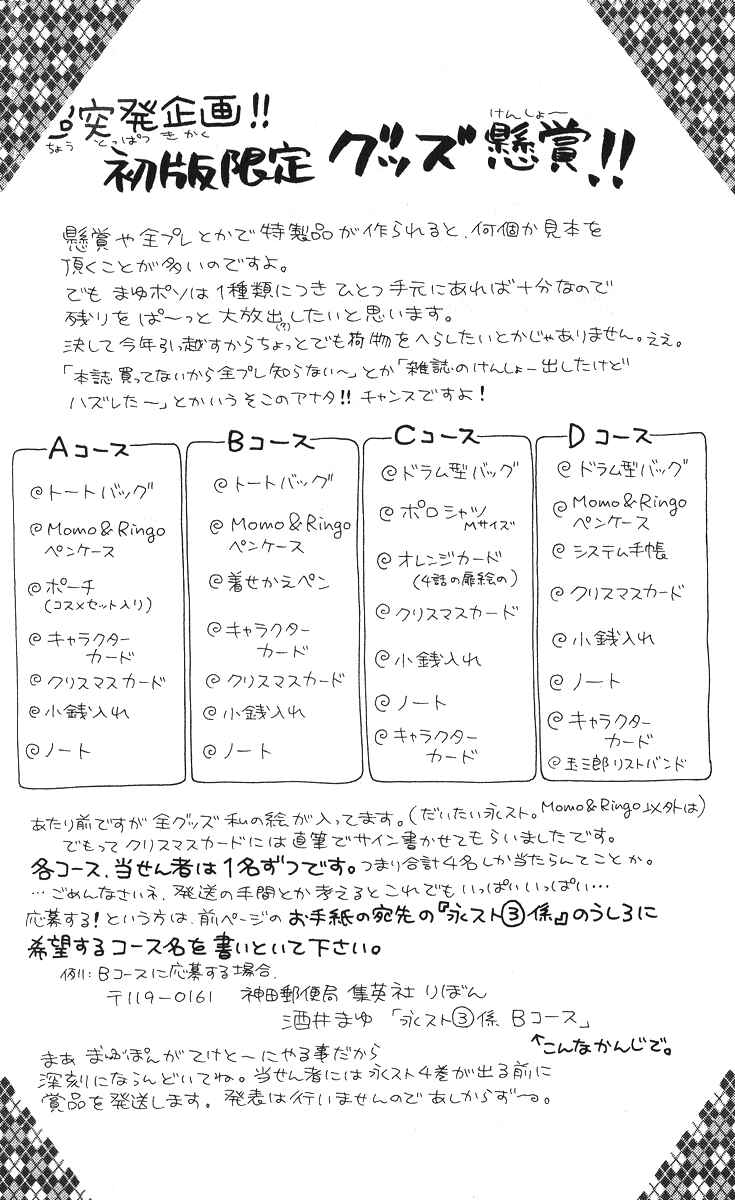 超突発企画!!
ちょう とっぱつ きかく
けんしょ〜
初版限定 グッズ懸賞!!
懸賞や全プレとかで特製品が作られると、何個か見本を
頂くことが多いのですよ。
でも まゆポソは1種類につき ひとつ手元にあれば十分なので
残りを ぱ〜っと 大放出したいと思います。
(?)
決して今年引っ越すからちょっとでも荷物をへらしたいとかじゃありません。ええ。
「本誌買ってないから全プレ知らない〜」とか「雑誌のけんしょー出したけど
ハズレた〜」とかいうそこのアナタ!! チャンスですよ!
Aコース
@トートバッグ
@Momo&Ringo
ペンケース
@ポーチ
(コスメセット入り)
@キャラクター
カード
@クリスマスカード
@小銭入れ
@ノート
Bコース
@トートバッグ
@Momo&Ringo
ペンケース
@着せかえペン
@キャラクター
カード
@クリスマスカード
@小銭入れ
@ノート
Cコース
@ドラム型バッグ
@ポロシャツ
Mサイズ
@オレンジカード
(4話の扉絵の)
@クリスマスカード
@小銭入れ
@ノート
@キャラクター
カード
Dコース
@ドラム型バッグ
@Momo&Ringo
ペンケース
@システム手帳
@クリスマスカード
@小銭入れ
@ノート
@キャラクター
カード
@玉三郎リストバンド
あたり前ですが全グッズ私の絵が入ってます。(だいたい永スト。Momo&Ringo以外は)
でもってクリスマスカードには直筆でサイン書かせてもらいましたです。
各コース、当せん者は1名ずつです。つまり合計4名しか当たらんてことか。
…ごめんなさいネ、発送の手間とか考えるとこれでもいっぱいいっぱい…
応募する!という方は、前ページのお手紙の宛先の『永スト③係』のうしろに
希望するコース名を書いといて下さい。
例:Bコースに応募する場合、
〒119-0161 神田郵便局 集英社 りぼん
酒井まゆ「永スト③係 Bコース」
↑こんなかんじで。
まあ まゆぽんがてけと〜にやる事だから
深刻にならんどいてね。当せん者には永スト4巻が出る前に
賞品を発送します。発表は行いませんのであしからず〜。